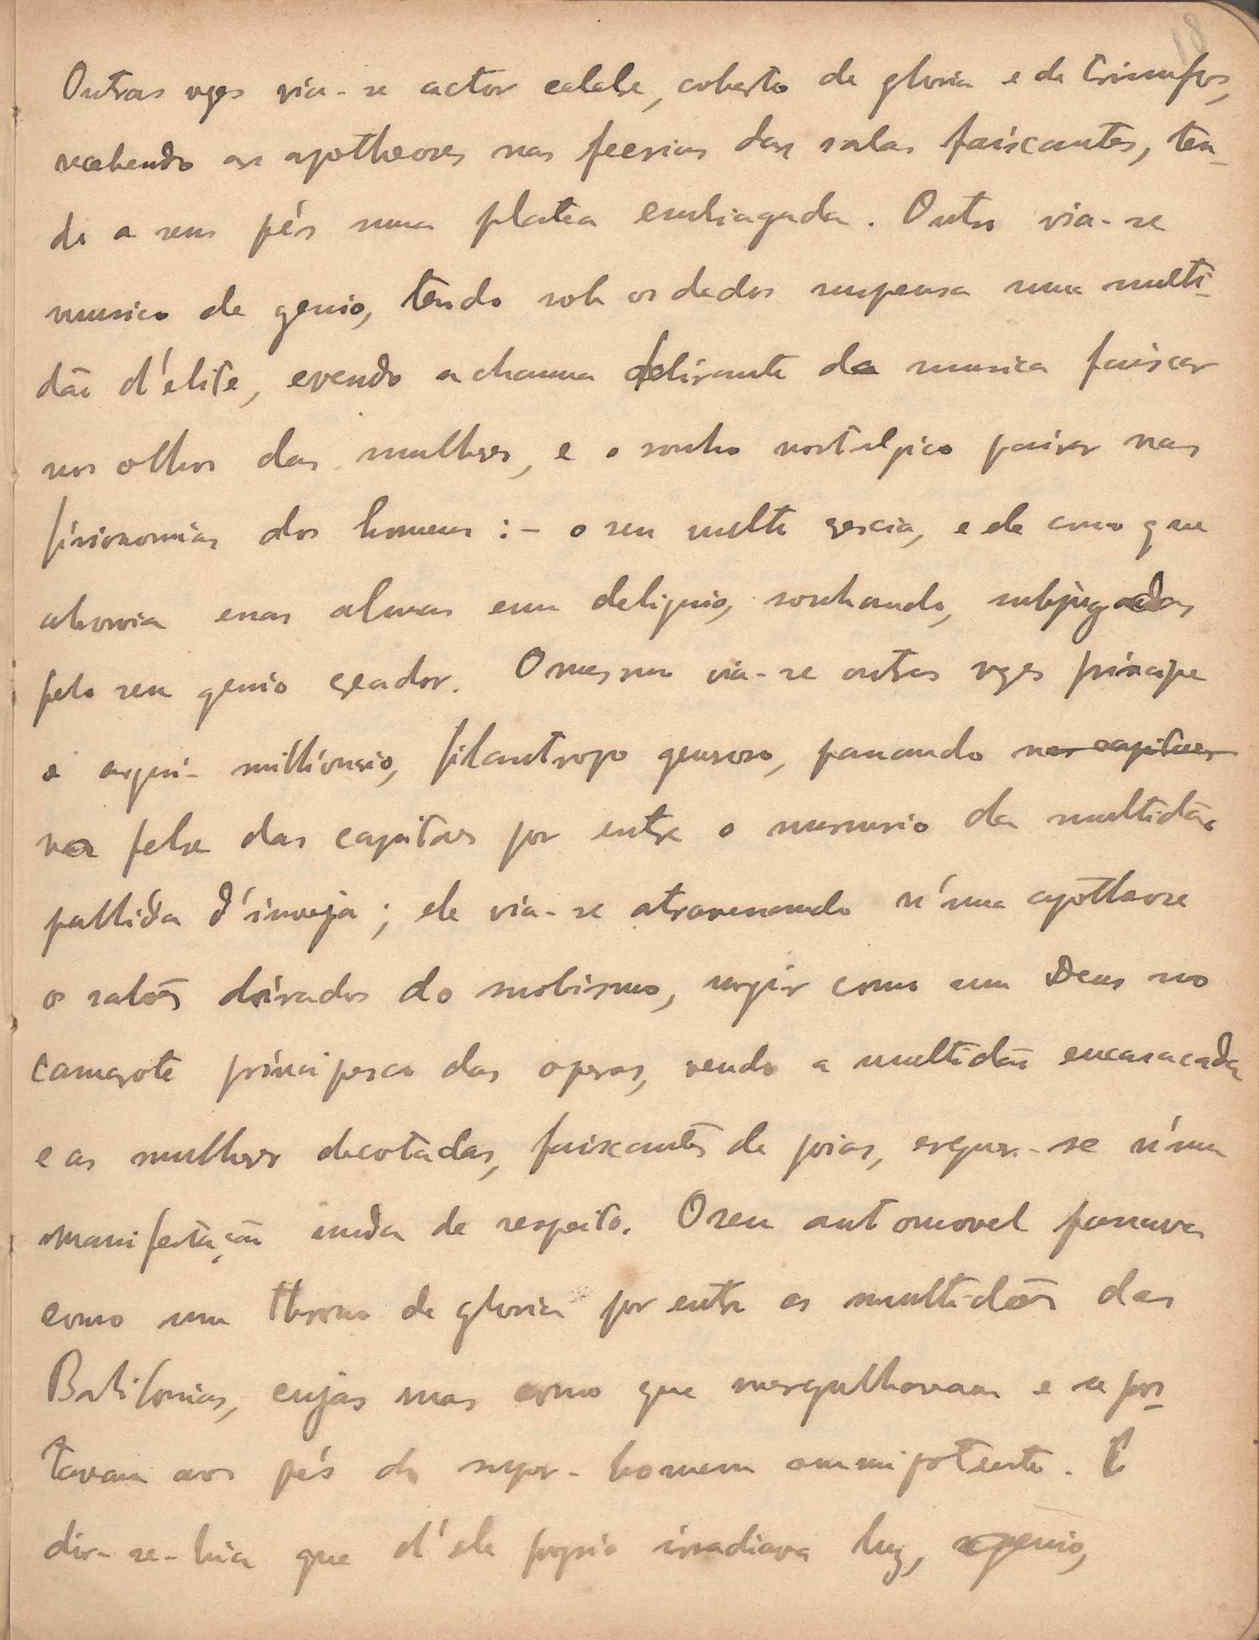 18
Outras vezes via-se actor celebre, coberto de gloria e de triumfos,
recebendo as apotheoses nas feerias das salas faiscantes, ten-
do a seus pés uma platea embriagada. Outro via-se
musico de genio, tendo sob os dedos suspensa uma multi-
dão d'elite, e vendo a chamma delirante da musica faiscar
nos olhos das mulheres, e o sonho nostalgico pairar nas
fisionomias dos homens :- o seu vulto crescia, e ele como que
absorvia essas almas em deliquio, sonhando, subjugadas
pelo seu genio creador. O mesmo via-se outras vezes principe
e arqui-millionario, filantropo generoso, passando nas capitaes
na febre das capitaes por entre o murmurio da multidão
pallida d'inveja; ele via-se atravessando n'uma apotheose
os salões doirados do snobismo, surgir como um Deus no
camarote principesco das operas, vendo a multidão encasacada
e as mulheres decotadas, faiscantes de joias, erguer-se n'uma
manifestação muda de respeito. O seu automovel passava
como um throno de gloria por entre as multidões das
Babilonias, cujas ruas como que mergulhavam e se pos-
tavam aos pés do super-homem ommipotente. E
dir-se-hia que d'ele proprio irradiava luz, genio,